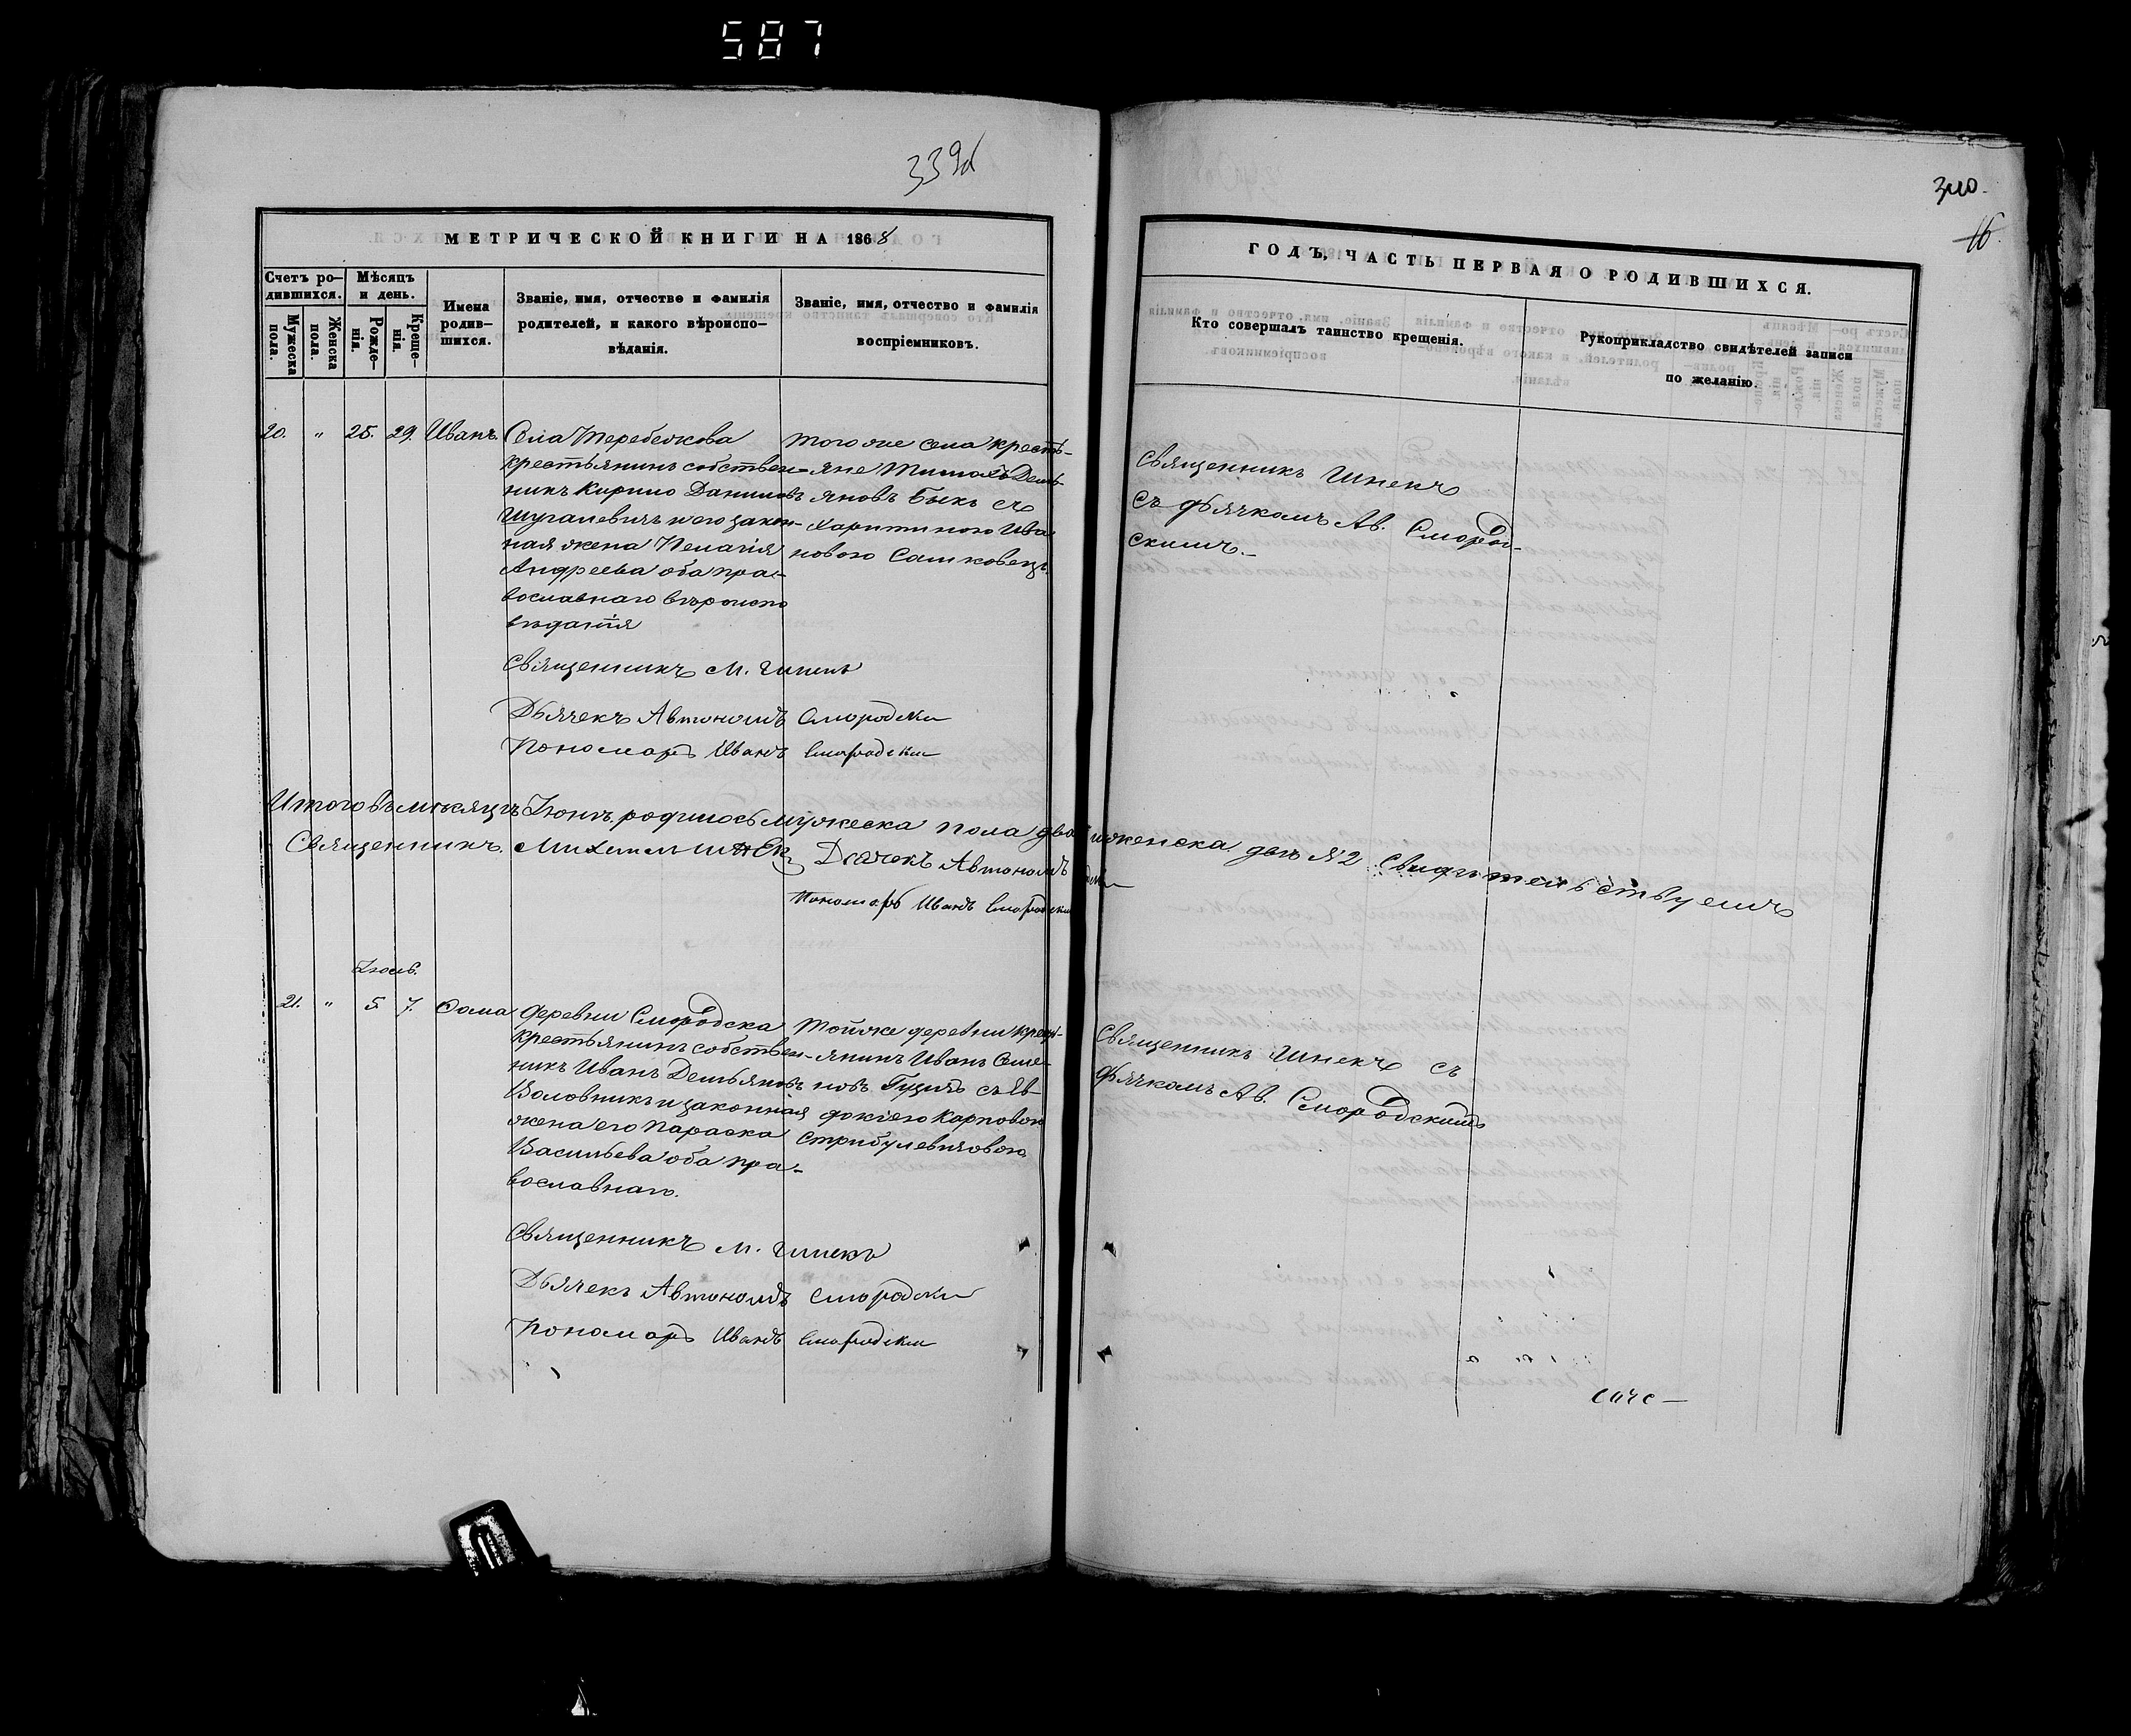 587
339об
340.
16.
МЕТРИЧЕСКОЙ КНИГИ НА 1868
Счетъ ро-
дившихся.
Мужеска
пола.
Женска
пола.
Мѣсяцъ
и день.
Рожде-
нія.
Креще-
нія.
Имена
родив-
шихся.
Званіе, имя, отчество и фамилія
родителей, и какого вѣроиспо-
вѣданія.
Званіе, имя, отчество и фамилія
воспріемниковъ.
20. " 25. 29. Иванъ.
Села Теребежова
крестьянинъ собствен-
никъ Кирило Даниловъ
и его закон-
ная жена Пелагія
Андреева оба пра-
вославнаго вѣроиспо
вѣданія
того же села кресть-
яне Демь-
яновъ Быкъ съ
Харитиною Ива
новою
Священникъ М. Шпекъ
Дьячекъ Автономъ Смородски
Пономарь Иванъ Смородски
Итого въ мѣсяцѣ Іюнѣ родилось мужеска пола два
Священникъ Михаилъ Дьячекъ Автономъ
Пономарь Иванъ Смородски
Іюль.
21. " 5 7. Фома
деревни Смородска
крестьянинъ собствен-
никъ Иванъ Демьяновъ
Воловникъ и законная
жена его Параска
Васильева оба пра-
вославнаго.
тойже деревни крест-
янинъ Иванъ Семе-
новъ съ Ев-
докіею Карповою
Стрибулевичовою
Священникъ М. Шпекъ
Дьячекъ Автономъ Смородски
Пономарь Иванъ Смородски
ГОДЪ, ЧАСТЬ ПЕРВАЯ О РОДИВШИХСЯ.
Кто совершалъ таинство крещенія.
Рукоприкладство свидѣтелей записи
по желанію.
Священникъ Шпекъ
съ дьячкомъ Ав. Смород-
скимъ.
женска двѣ № 2 Свидѣтельствуемъ
Священникъ Шпекъ съ
дьячкомъ Ав. Смородскимъ